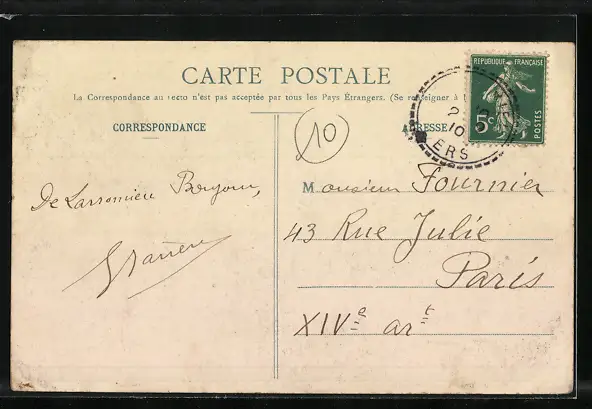 CARTE POSTALE
La Correspondance au recto n'est pas acceptée par tous les Pays Étrangers. (Se renseigner à
CORRESPONDANCE
ADRESSE
10
RÉPUBLIQUE FRANÇAISE
5c
POSTES
2
10
ERS
De Bonjour,
Monsieur Fournier
43 Rue Julie
Paris
XIVe art